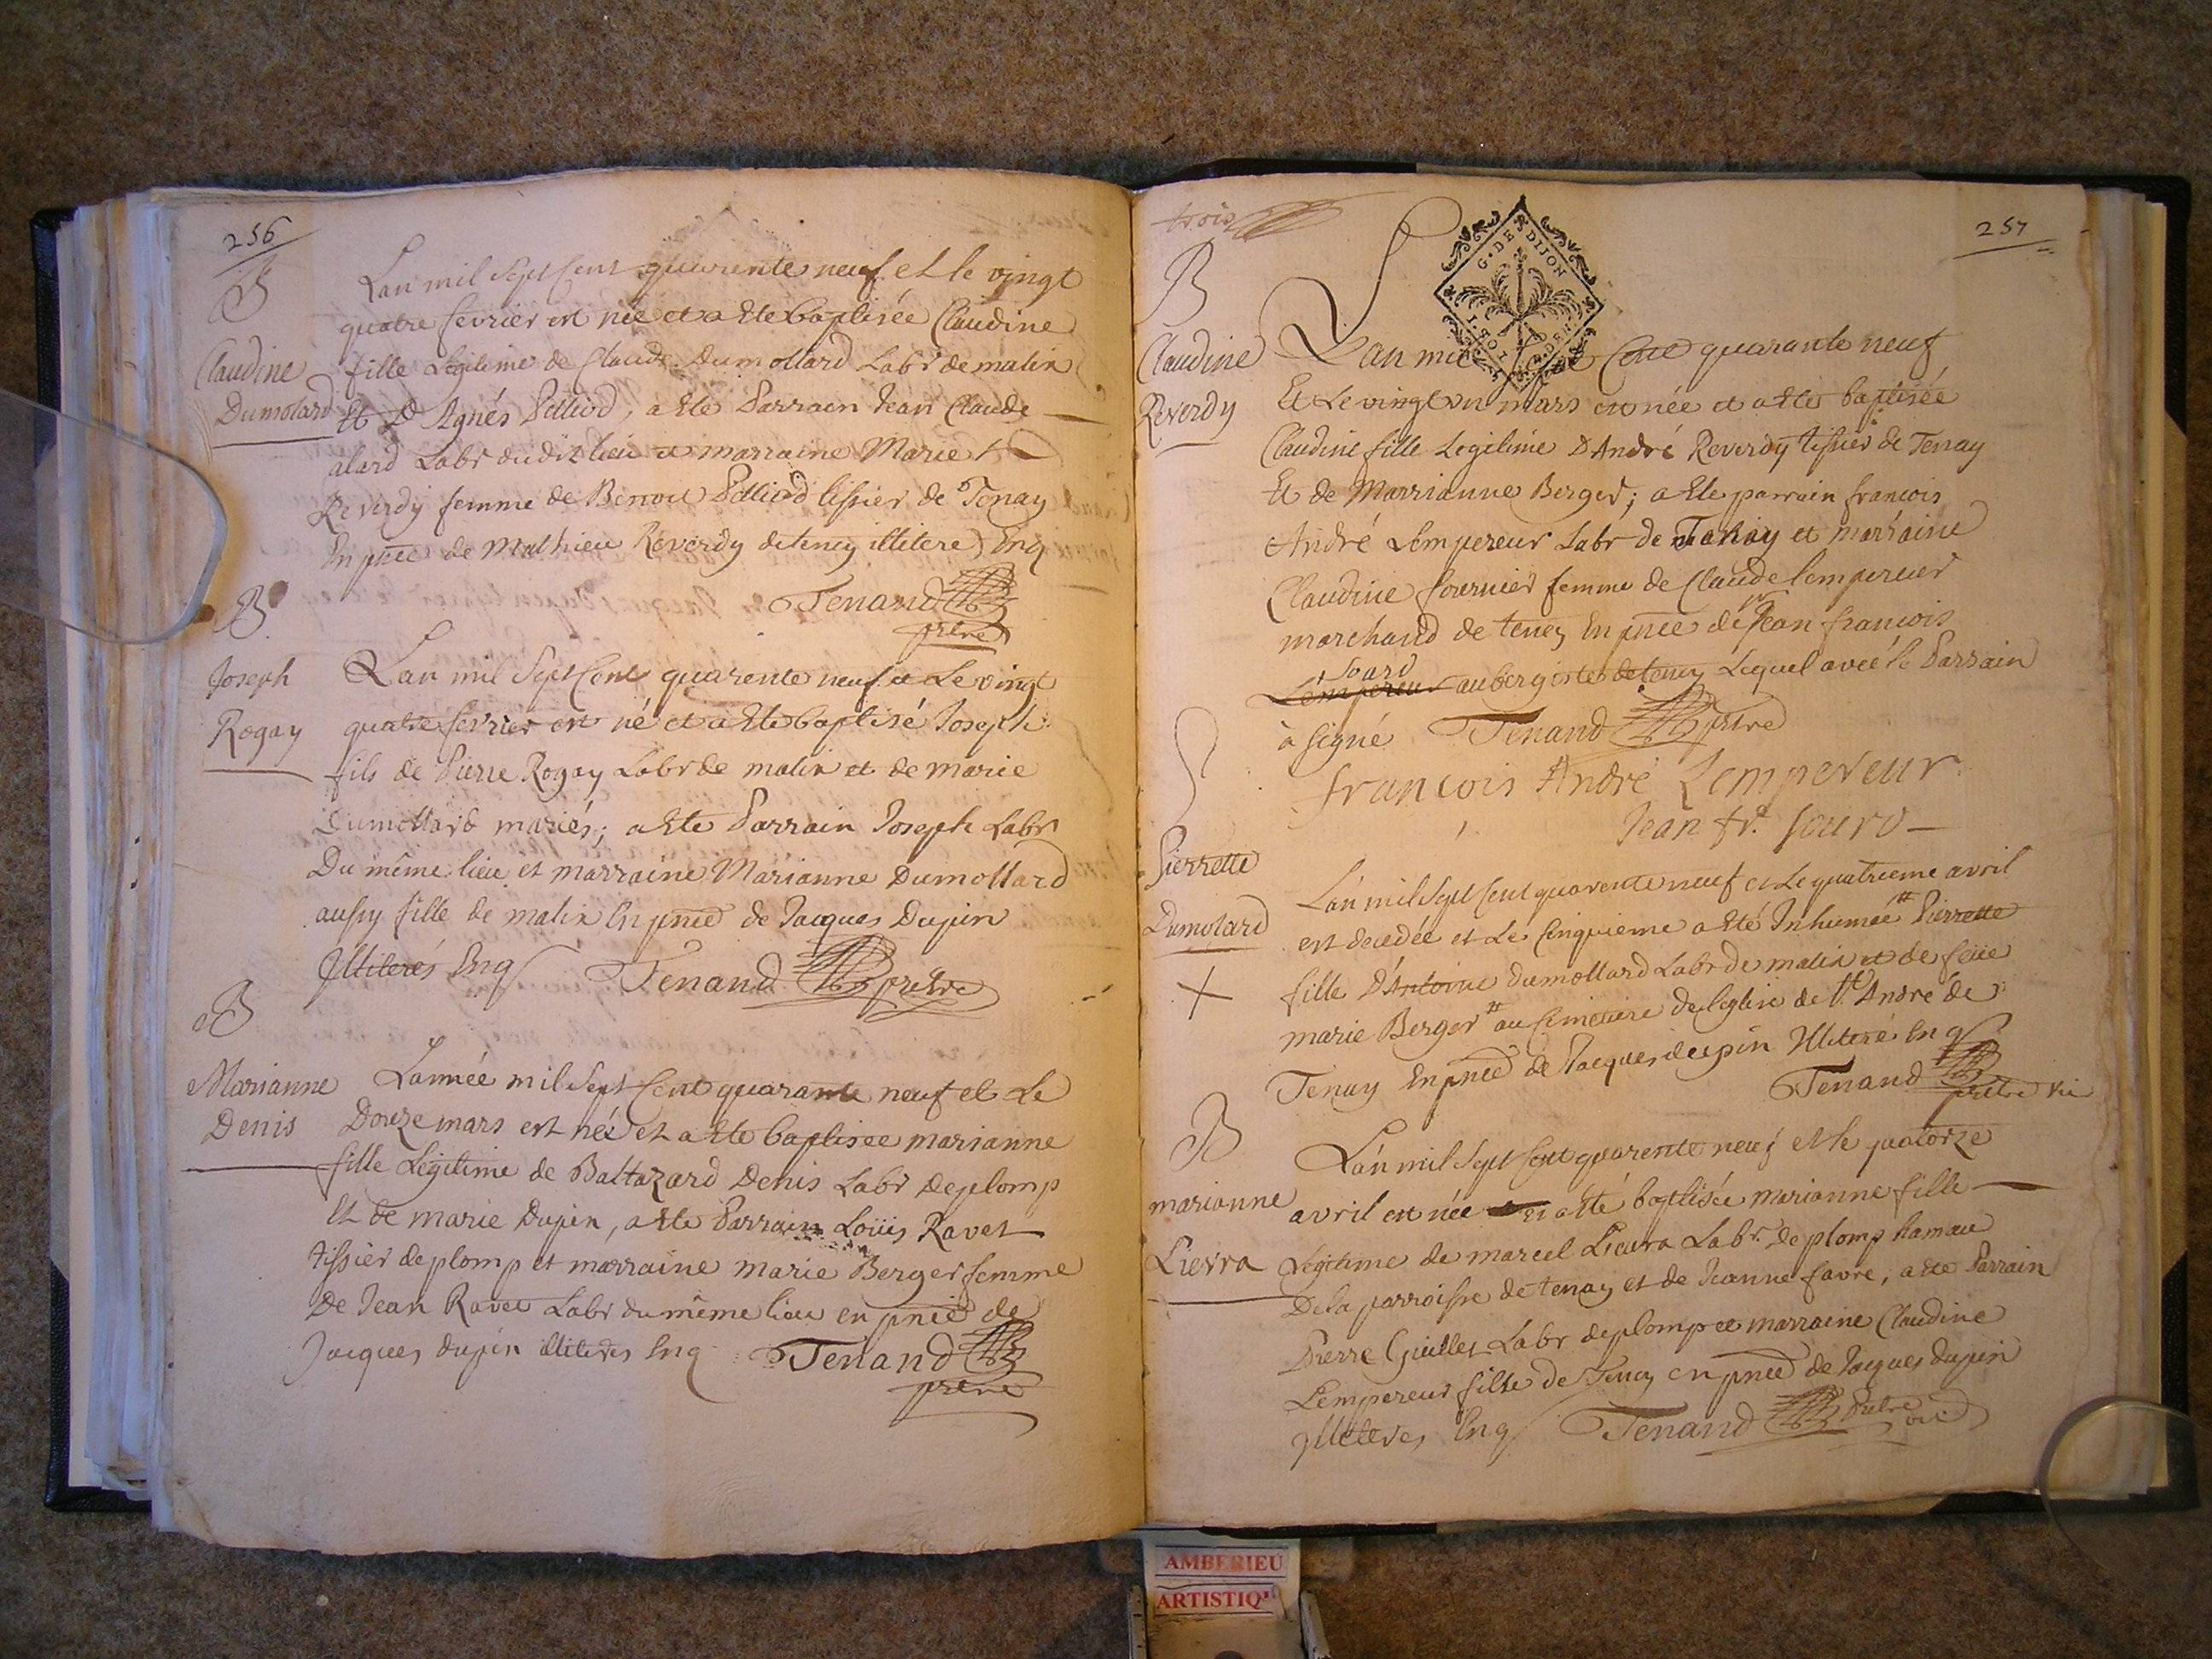 256
B
Claudine
Dumolard
Lan mil Sept Cent quarente neuf et le vingt
quatre fevrier est née et a Ete baptisée Claudine
fille Legitime de Claude Dumollard Labr de malix
Et D Agnés Pelliod, a Ete Parrain Jean Claude
alard Labr dudit lieu et marraine Marie
Reverdy femme de Benoit Pelliod tissier de Tenay
En pnce de Mathieu Reverdy de teney illitere Enq
Tenand
prêtre
B
Joseph
Rogay
Lan mil Sept Cent quarente neuf et Le vingt
quatre fevrier est né et a Ete baptisé Joseph
fils de Pierre Rogay Labr de malix et de marie
Dumollard mariés; a Ete Parrain Joseph Labr
Du même lieu et marraine Marianne Dumollard
aussy fille de malix En pnce de Jacques Dupin
Illiterés Enq Tenand prêtre
B
Marianne
Denis
Lannée mil Sept Cent quarante neuf et Le
Douze mars est née et a Ete baptisee marianne
fille Legitime de Baltazard Denis Labr de plomp
Et de marie Dupin, a Ete Parrain Loüis Ravet
tissier de plomp et marraine marie Berger femme
De Jean Ravet Labr du même lieu en pnce de
Jacques dupin illiterés Enq Tenand
prêtre
trois
257
G. DE DIJON
B
Claudine
Reverdy
Lan mil Cent quarante neuf
Et Le vingt un mars est née et a Ete baptisée
Claudine fille Legitime D André Reverdy tissier de Tenay
Et de Marrianne Berger; a Ete parrain francois
André Lempereur Labr de Tenay et marraine
Claudine fournier femme de Claude lempereur
marchand de teney En pnce de Sr Jean francois
Sourd
Lempereur aubergiste de teney Lequel avec le Parrain
à signé Tenand prêtre
francois André Lempereur
Jean fr. sourd
S
Pierrette
Dumolard
Lán mil Sept Cent quarente neuf et Le quatrieme avril
est decedée et Le Cinquieme a Eté Inhumée Pierrette
fille D'Antoine dumollard Labr de malix et de feüe
marie Berger au Cimetiere de leglise de St André de
Tenay En pnce de Jacques dupin Illiteré Enq
Tenand
prêtre vic
B
marianne
Lievra
Lán mil Sept Cent quarente neuf et le quatorze
avril est née et a Eté baptisée marianne fille
Legitime de marcel Lieura Labr. de plomp hamau
De la parroisse de tenay et de Jeanne favre, a Ete Parrain
Pierre Guillet Labr de plomp et marraine Claudine
Lempereur fille de Teney en pnce de Jacques dupin
Illiterés Enq Tenand Prêtre vic
AMBERIEU
ARTISTIQ